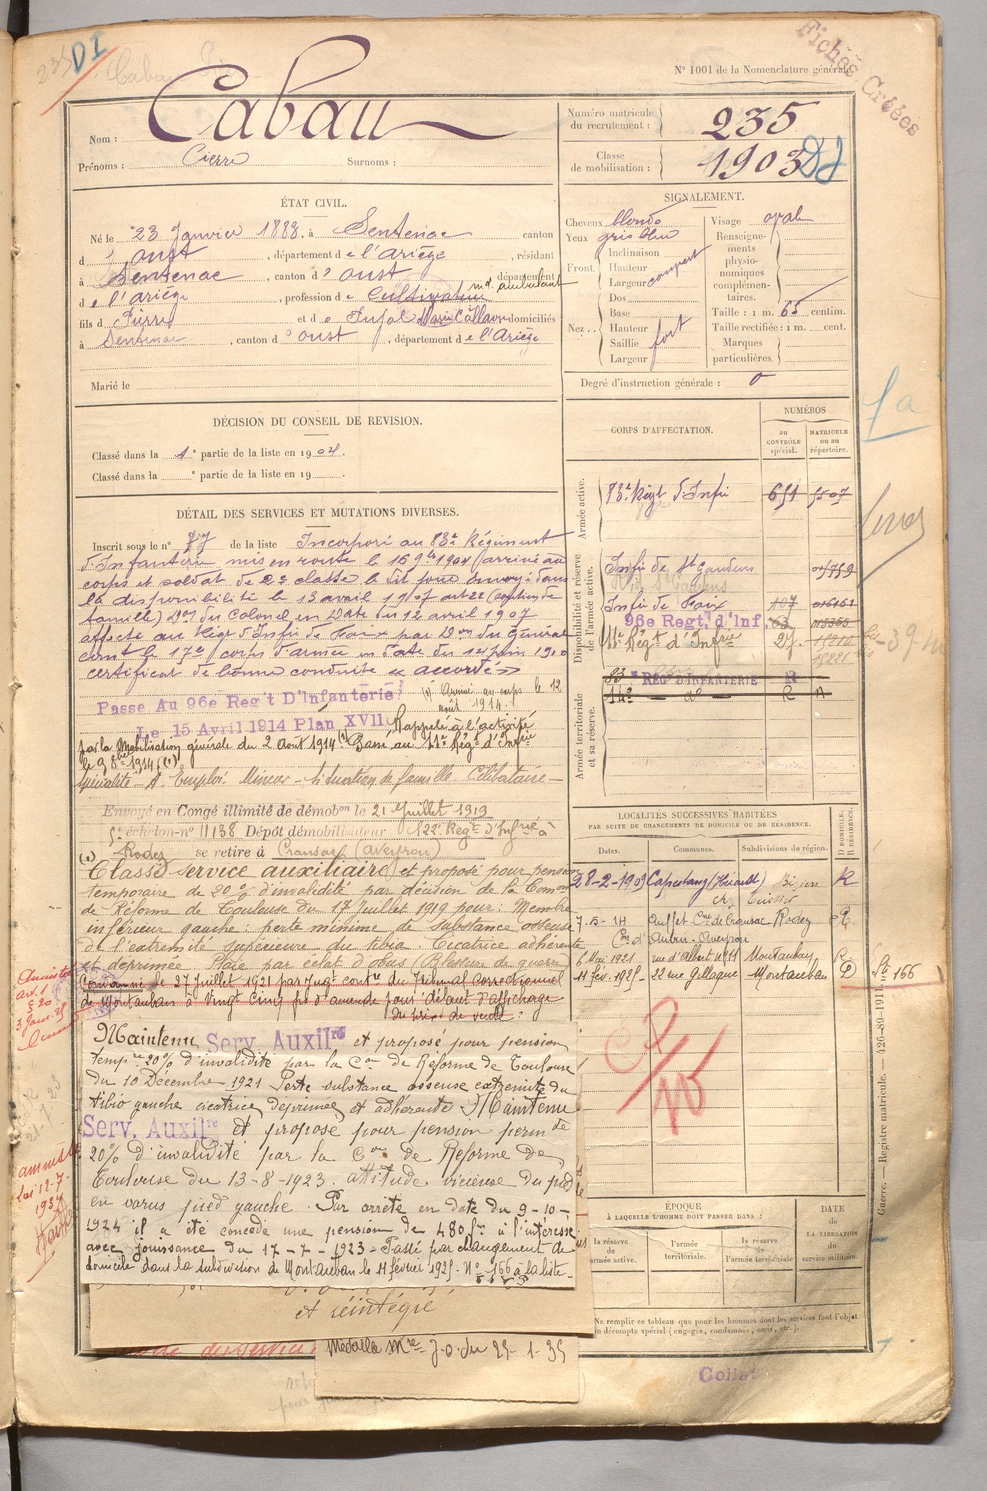 235 DI
Fichés Créées
N° 1001 de la Nomenclature générale.
Nom : Cabau
Prénoms : Pierre Surnoms :
Numéro matricule du recrutement : 235
Classe de mobilisation : 1903
ÉTAT CIVIL.
Né le 23 Janvier 1883, à Sentenac canton
d' oust, département de l'ariège, résidant
à Sentenac, canton d' oust, département
de l'ariège, profession de Cultivateur md ambulant
fils de Pierre et de Pujol Marie domiciliés
à Sentenac, canton d' oust, département de l'Ariège
Marié le
SIGNALEMENT.
Cheveux blonds
Yeux gris bleu
Front. Inclinaison
Hauteur
Largeur
Nez.. Dos
Base
Hauteur fort
Saillie
Largeur
Visage oval
Renseignements physionomiques complémentaires.
Taille : 1 m. 65 centim.
Taille rectifiée : 1 m. cent.
Marques particulières.
Degré d'instruction générale : 0
DÉCISION DU CONSEIL DE REVISION.
Classé dans la 1e partie de la liste en 1904.
Classé dans la e partie de la liste en 19
DÉTAIL DES SERVICES ET MUTATIONS DIVERSES.
Inscrit sous le n° 77 de la liste Incorporé au 83e Régiment
d'Infanterie mis en route le 16 9bre 1904 arrivé au
corps et soldat de 2e classe le dit jour Envoyé dans
la disponibilité le 13 avril 1907 art 22 (soutien de
famille) Don du Colonel en Date du 12 avril 1907
affecté au Régt d'Infie de Foix par Don du Général
comt le 17e corps d'armée en date du 14 juin 1910
certificat de bonne conduite « accordé »
Passe Au 96e Reg't D'Infanterie
(1) Arrivé au corps le 12 août 1914.
Le 15 Avril 1914 Plan XVII Rappelé à l'activité
par la Mobilisation générale du 2 Août 1914 (1) Passé au 11e Régt d'Infie
le 9 8bre 1914 (1)
Spécialité A. Emploi Mineur - Situation de famille Célibataire -
Envoyé en Congé illimité de démobon le 21 Juillet 1919
5e échelon n° 11138 Dépôt démobilisateur 122e Régt d'Infrie à
Rodez se retire à Cransac (Aveyron)
Classé service auxiliaire et proposé pour pension
temporaire de 20% d'invalidité par décision de la Comon
de Réforme de Toulouse du 17 Juillet 1919 pour : Membre
inférieur gauche : perte minime de substance osseuse
de l'extrémité supérieure du tibia. Cicatrice adhérente
et déprimée. Plaie par éclat d'obus (Blessure de guerre)
Condamné le 27 Juillet 1921 par Jugt contre du Tribunal Correctionnel
de Montauban à Vingt Cinq frs d'amende pour défaut d'affichage
du prix de vente :
Maintenu Serv. Auxil re et proposé pour pension
tempre 20% d'invalidité par la Con de Réforme de Toulouse
du 10 Décembre 1921 Perte substance osseuse extrémité du
tibia gauche cicatrice déprimée et adhérente Maintenu
Serv. Auxil re et proposé pour pension perm de
20% d'invalidité par la Con de Réforme de
Toulouse du 13-8-1923. attitude vicieuse du pied
en varus pied gauche. Par arrêté en date du 9-10-
1924 il a été concédé une pension de 480 frs à l'intéressé
avec jouissance du 17-7-1923 - Passé par changement de
domicile dans la subdivision de Montauban le 11 février 1925. N° 166 de la liste
et réintégré
Médaille mre J.O. du 25-1-35
CORPS D'AFFECTATION.
NUMÉROS
AU CONTRÔLE spécial. MATRICULE ou au répertoire.
Armée active.
83e Régt d'Infie 651 5507
Disponibilité et réserve de l'armée active.
Infie de St Gaudens
Infie de Foix 107
96e Regt, d'Inf. 63
11e Régt d'Infrie 27
Armée territoriale et sa réserve.
83e REGt D'INFANTERIE R
14e do R
LOCALITÉS SUCCESSIVES HABITÉES
PAR SUITE DE CHANGEMENTS DE DOMICILE OU DE RÉSIDENCE.
Dates. Communes. Subdivisions de région. D DOMICILE, R RÉSIDENCE.
28-2-1909 Capestang (Hérault) Béziers R
6 Mai 1921 rue d'Albert n° 11 Montauban R
11 fév. 1925 22 rue Gillaque Montauban D
Ste 166
ÉPOQUE
À LAQUELLE L'HOMME DOIT PASSER DANS :
la réserve de l'armée active. l'armée territoriale. la réserve de l'armée territoriale
DATE de LA LIBÉRATION du service militaire.
Ne remplir ce tableau que pour les hommes dont les services font l'objet d'un décompte spécial (engagés, condamnés, omis, etc.).
Guerre. — Registre matricule. — 426-89-1911.
amnistié
Loi 12-7
1937